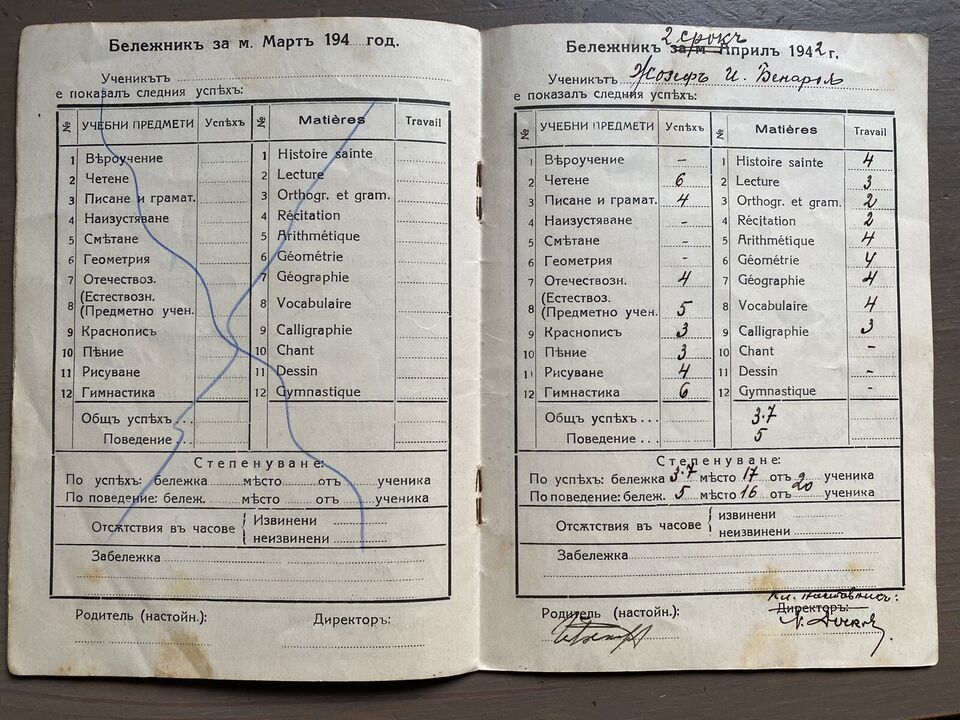 Бележникъ за м. Мартъ 194 год.
Ученикътъ
е показалъ следния успѣхъ:
№ УЧЕБНИ ПРЕДМЕТИ Успѣхъ № Matières Travail
1 Вѣроучение 1 Histoire sainte
2 Четене 2 Lecture
3 Писане и грамат. 3 Orthogr. et gram.
4 Наизустяване 4 Récitation
5 Смѣтане 5 Arithmétique
6 Геометрия 6 Géométrie
7 Отечествоз. 7 Géographie
8 (Естествозн. (Предметно учен. 8 Vocabulaire
9 Краснописъ 9 Calligraphie
10 Пѣние 10 Chant
11 Рисуване 11 Dessin
12 Гимнастика 12 Gymnastique
Общъ успѣхъ . . .
Поведение . . .
Степенуване:
По успѣхъ: бележка място отъ ученика
По поведение: бележ. място отъ ученика
Отсѫтствия въ часове { Извинени
неизвинени
Забележка
Родитель (настойн.): Директоръ:
2 срокъ
Бележникъ за м. Априлъ 1942 г.
Ученикътъ Жозефъ И. Бенароя
е показалъ следния успѣхъ:
№ УЧЕБНИ ПРЕДМЕТИ Успѣхъ № Matières Travail
1 Вѣроучение - 1 Histoire sainte 4
2 Четене 6 2 Lecture 3
3 Писане и грамат. 4 3 Orthogr. et gram. 2
4 Наизустяване - 4 Récitation 2
5 Смѣтане - 5 Arithmétique 4
6 Геометрия - 6 Géométrie 4
7 Отечествозн. 4 7 Géographie 4
8 (Естествозн. (Предметно учен. 5 8 Vocabulaire 4
9 Краснописъ 3 9 Calligraphie 3
10 Пѣние 3 10 Chant -
11 Рисуване 4 11 Dessin -
12 Гимнастика 6 12 Gymnastique -
Общъ успѣхъ . . . 3.7
Поведение . . . 5
Степенуване:
По успѣхъ: бележка 3.7 място 17 отъ 20 ученика
По поведение: бележ. 5 място 16 отъ ученика
Отсѫтствия въ часове { извинени
неизвинени
Забележка
Кл. наставникъ:
Родитель (настойн.): Директоръ: